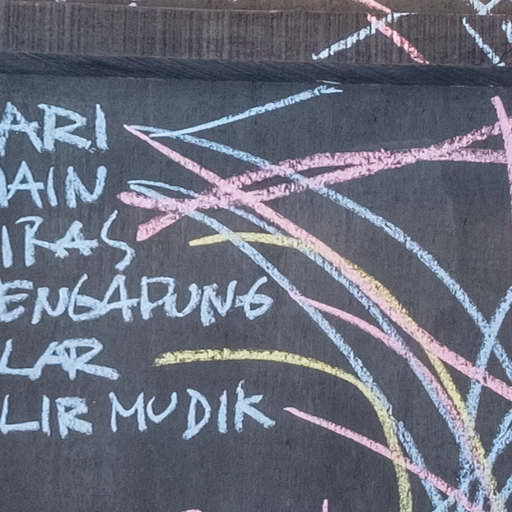 ARI
AIN
IRAS
ENGAPUNG
LAR
LIR MUDIK